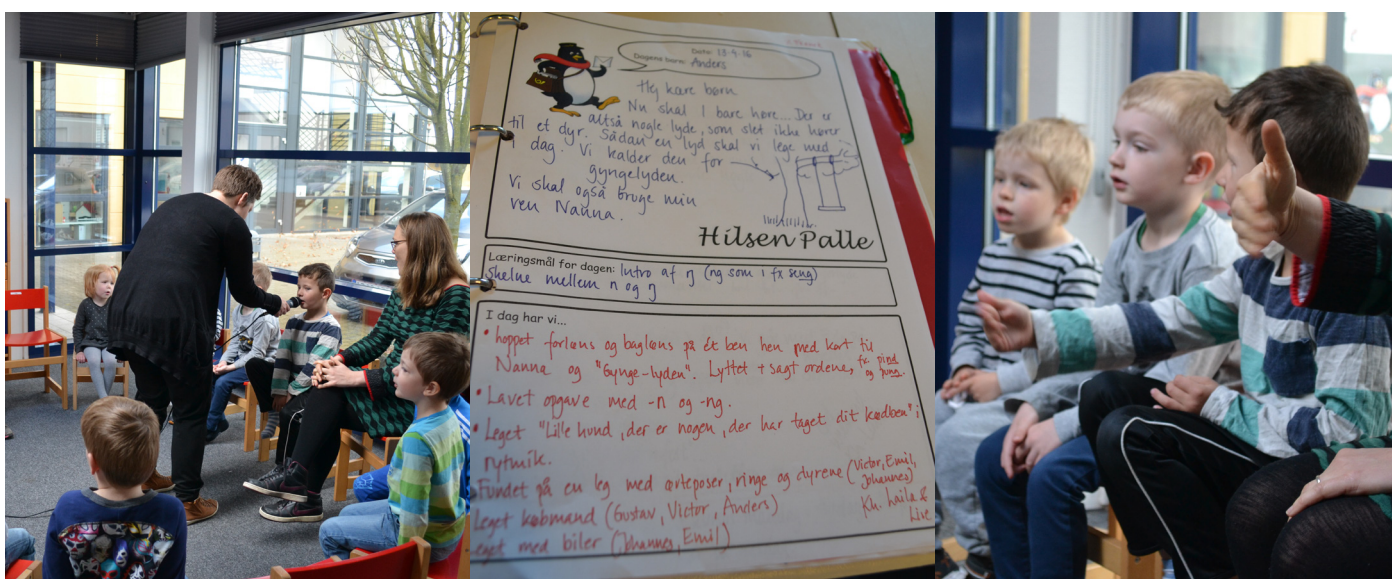 Dato: 13-4-16
Dagens barn: Anders
Hej kære børn
Nu skal I bare høre.... Der er
altså nogle lyde, som slet ikke hører
til et dyr. Sådan en lyd skal vi lege med
i dag. Vi kalder den for
gyngelyden.
Vi skal også bruge min
ven Nanna.
Hilsen Palle
Læringsmål for dagen: Intro af ŋ (ng som i fx seng)
Skelne mellem n og ŋ
I dag har vi...
• hoppet forlæns og baglæns på ét ben hen med kort til
Nanna og "Gynge-lyden". Lyttet + sagt ordene, fx. pind
og pung.
• Lavet opgave med -n og -ng.
• Leget "Lille hund, der er nogen, der har taget dit kødben" i
rytmik.
Fundet på en leg med ærteposer, ringe og dyrene (Victor, Emil,
Johannes)
Leget købmand (Gustav, Victor, Anders)
Kh. Laila &
Live
eget med biler (Johannes, Emil)